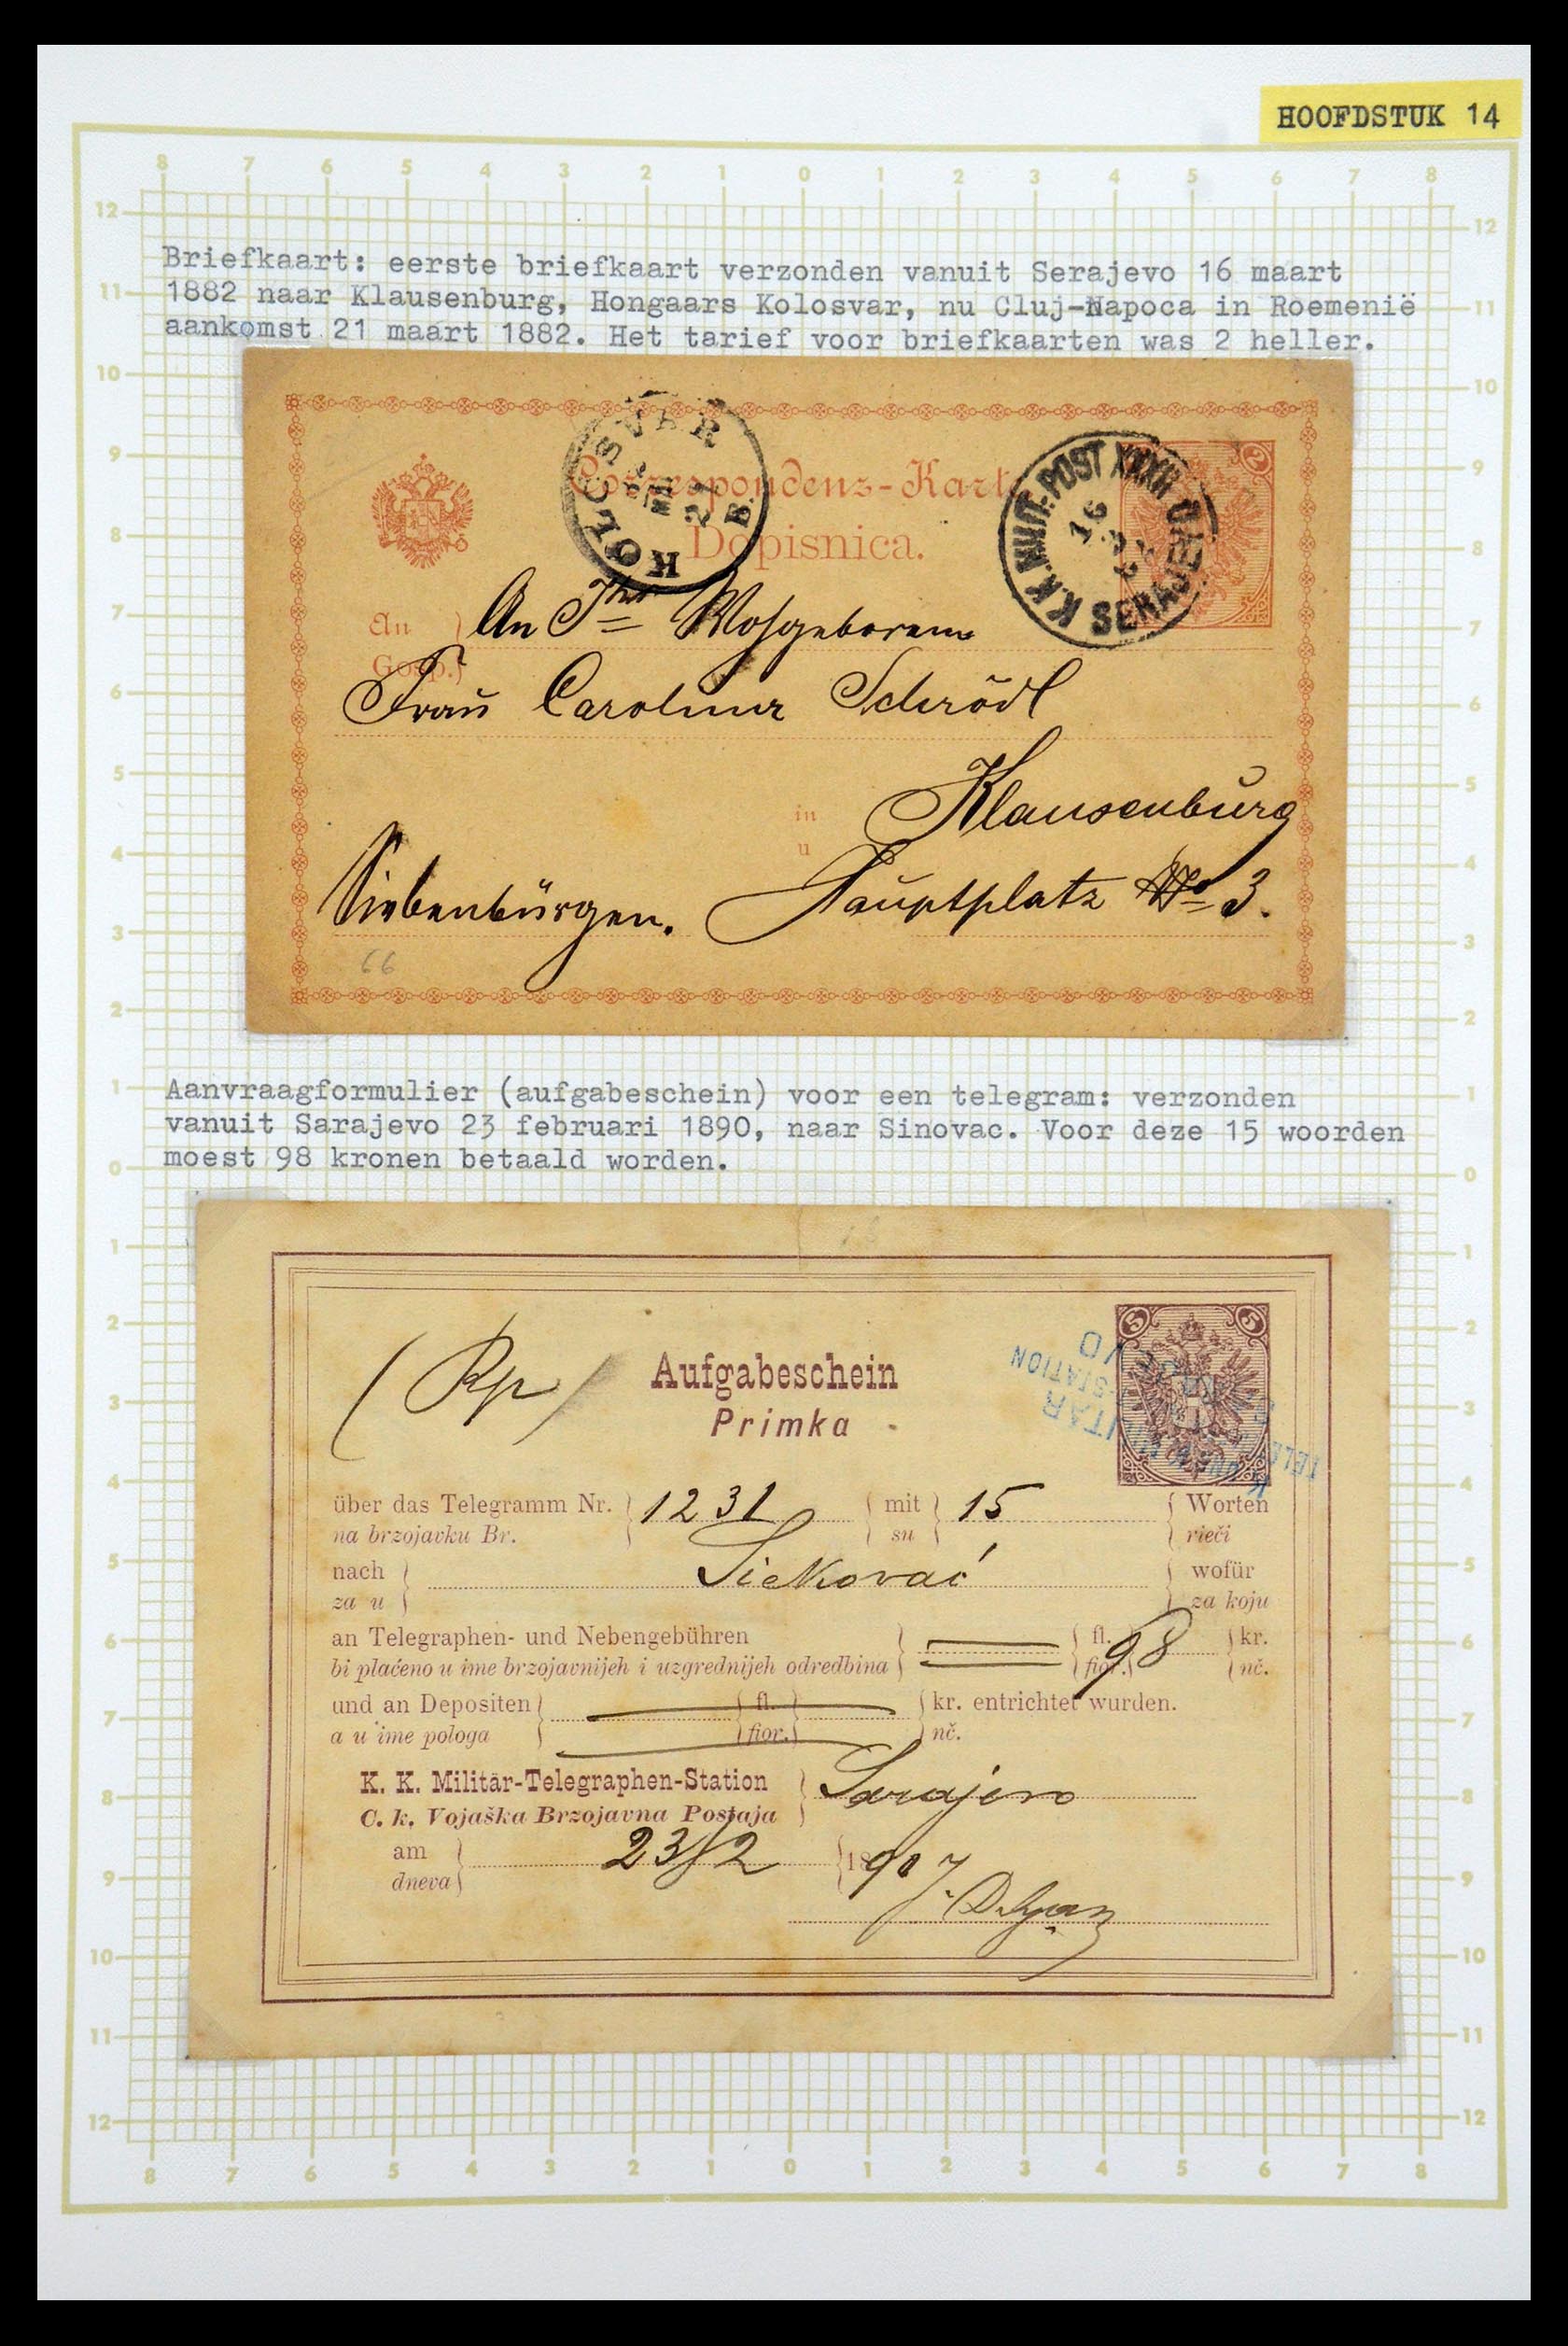 HOOFDSTUK 14
8 7 6 5 4 3 2 1 0 1 2 3 4 5 6 7 8
Briefkaart: eerste briefkaart verzonden vanuit Serajevo 16 maart
1882 naar Klausenburg, Hongaars Kolosvar, nu Cluj-Napoca in Roemenië
aankomst 21 maart 1882. Het tarief voor briefkaarten was 2 heller.
KOLOSVÁR
21
B.
K.K. MILIT: POST XXXIII
SERAJEVO
16
2
Correspondenz-Karte
Dopisnica.
An
Gosp.
An Ihr Wohlgeboren
Frau Caroline Schrödl
in
u
Klausenburg
Siebenbürgen. Hauptplatz No 3.
66
Aanvraagformulier (aufgabeschein) voor een telegram: verzonden
vanuit Sarajevo 23 februari 1890, naar Sinovac. Voor deze 15 woorden
moest 98 kronen betaald worden.
5 5
(Rp)
Aufgabeschein
Primka
über das Telegramm Nr. 1231 mit 15 Worten
na brzojavku Br. su rieči
nach wofür
za u za koju
an Telegraphen- und Nebengebühren fl. 98 kr.
bi plaćeno u ime brzojavnijeh i uzgrednijeh odredbina fior. nč.
und an Depositen fl. kr. entrichtet wurden.
a u ime pologa fior. nč.
K. K. Militär-Telegraphen-Station Sarajevo
C. k. Vojaška Brzojavna Postaja
am 23/2 1890
dneva
8 7 6 5 4 3 2 1 0 1 2 3 4 5 6 7 8